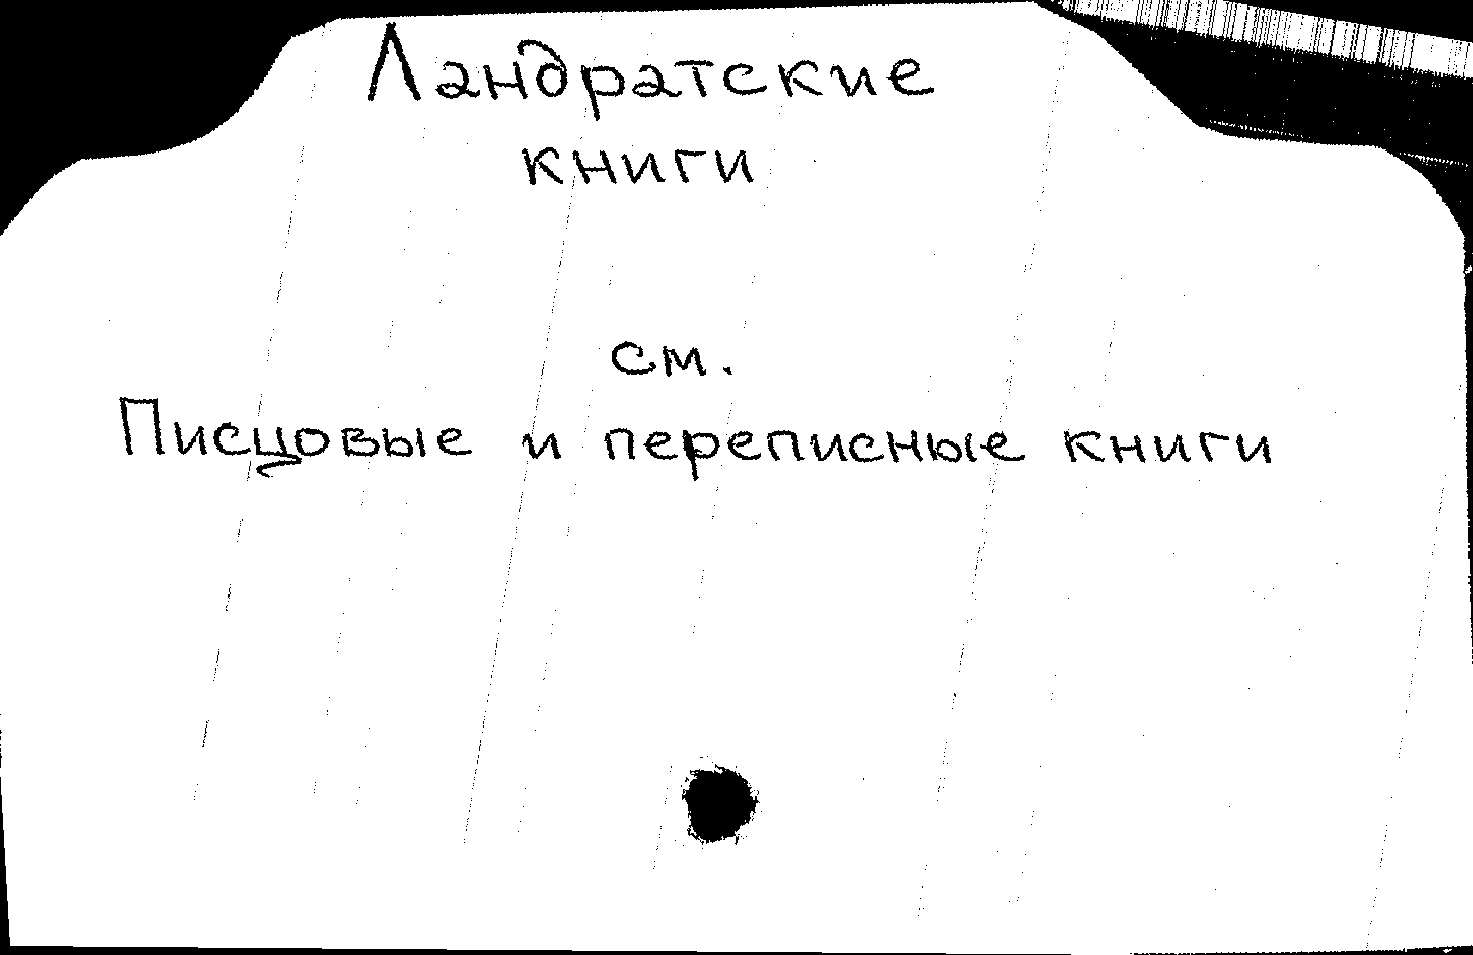 Ландратские
книги
см.
Писцовые и переписные книги